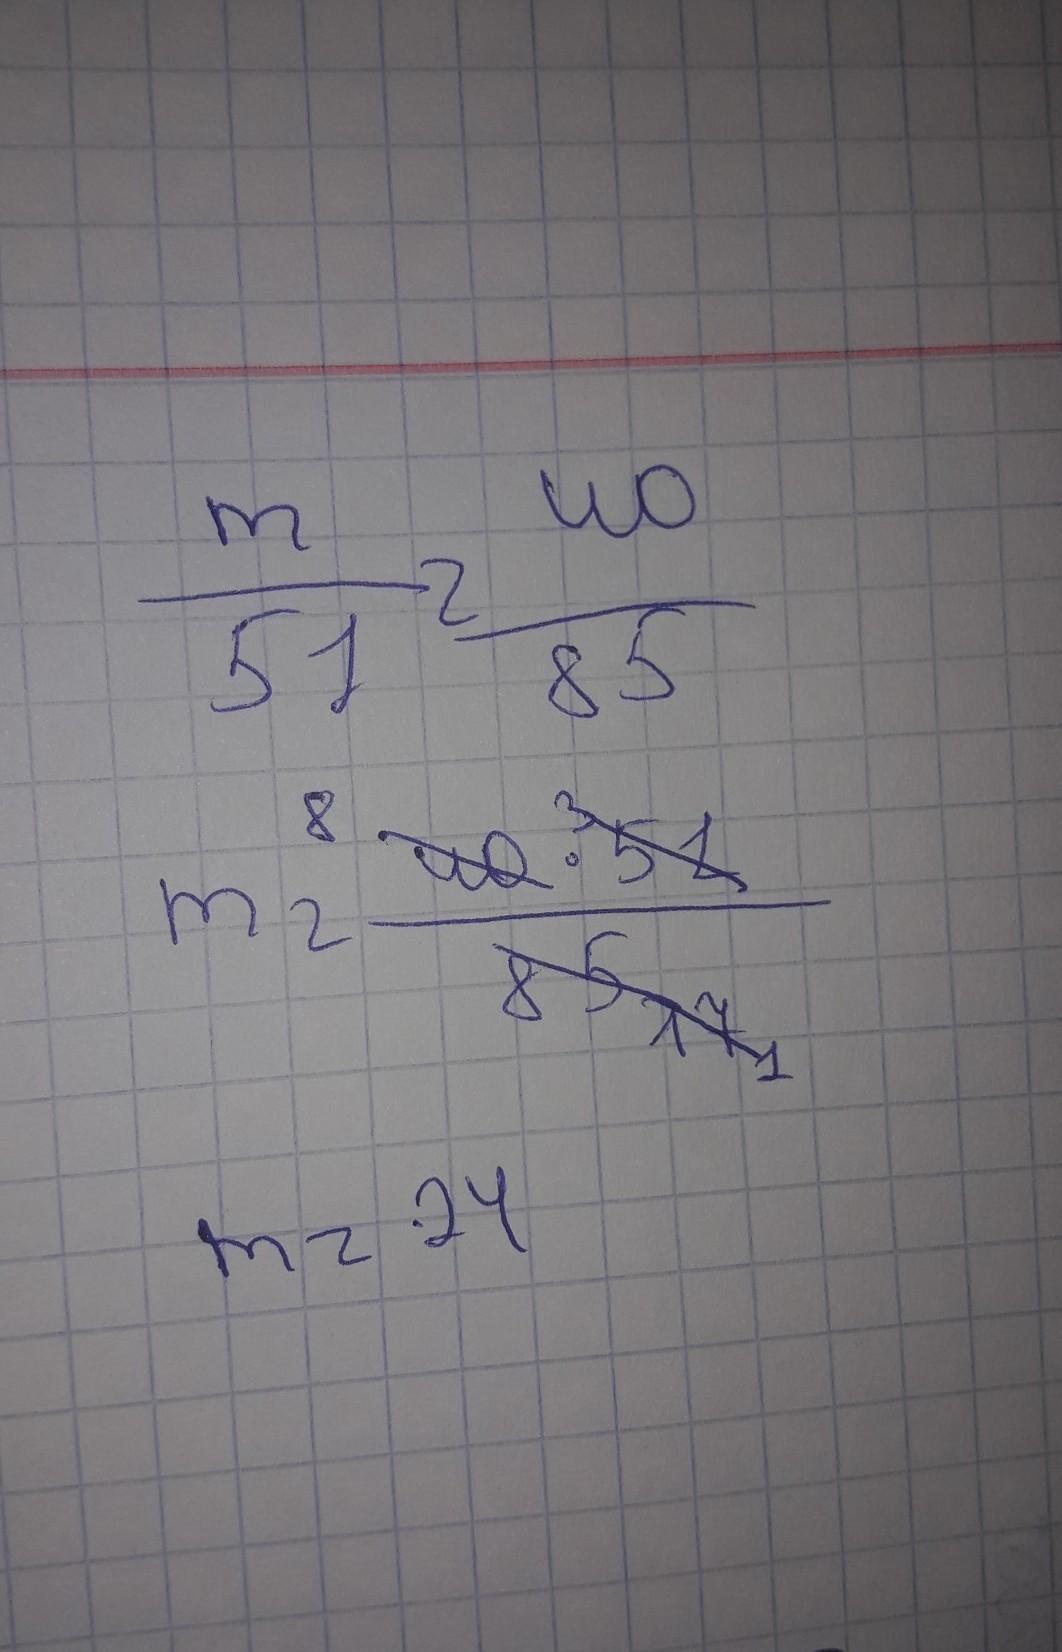 m/51 = 40/85
m = 8 40 · 3 51 / 85 17 1
m = 24